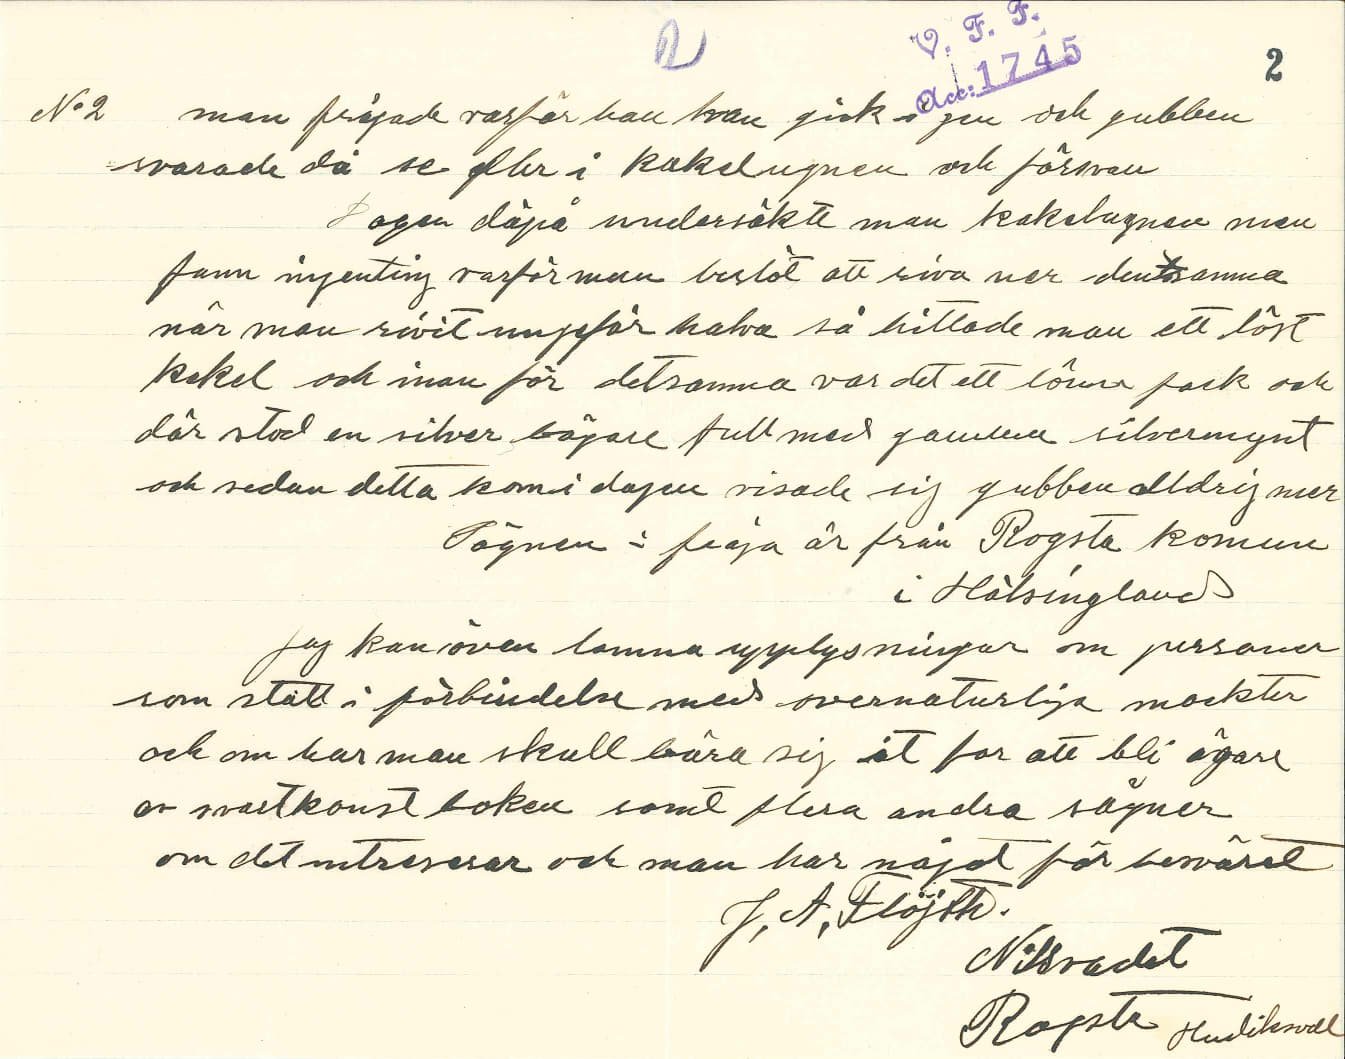 2
V. F. F.
Acc: 1745
2
No 2 man frågade varför han kvan gick i gen och gubben
svarade då se efter i kakelugnen och försvan
Dagen däpå undersökte man kakelugnen men
fann ingenting varför man beslöt att riva ner densamma
när man rivit ungefär halva så hittade man ett löst
kakel och inan för detsamma var det ett lönn fack och
där stod en silver bägare full med gamla silvermynt
och sedan detta kom i dagen visade sig gubben alldrig mer
Sägnen i fråga är från Rogsta komun
i Hälsingland
Jag kan även lamna upplysningar om personer
som stått i förbindelse med overnaturliga mackter
och om hur man skull bära sig åt for att bli ägare
av svartkonst boken samt flera andra sägner
om det intreserar och man har något för besväret
J, A, Flöjth.
Nilsvadet
Rogsta Hudiksvall